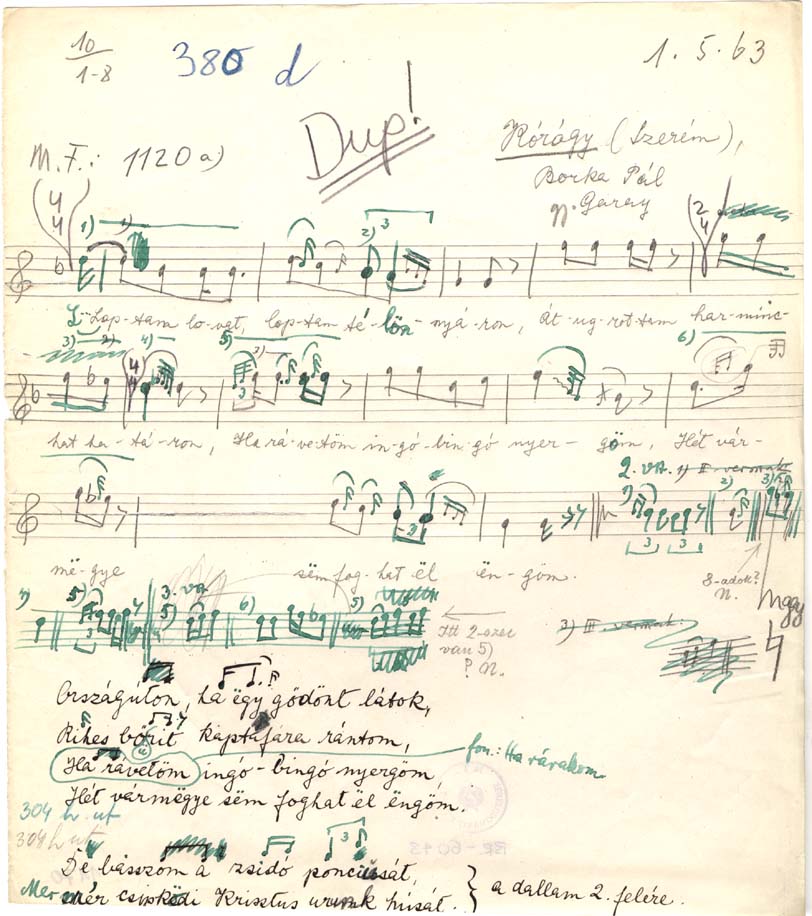 10
1-8
380 d
1. 5. 63
Dup!
M. F.: 1120 a)
Kórógy (Szerém),
Borka Pál
gy. Garay
L-Lop-tam lo-vat, lop-tam té-lön-nyá-ron, Át-ug-rot-tam har-minc-
hat ha-tá-ron, Ha rá-ve-töm in-gó-bin-gó nyer-göm, Hét vár-
2. vsz. 1)
më-gye sëm fog-hat ël ën-göm.
8-adok?
N.
3. vsz.
Itt 2-szer
van 5)
? N.
Országúton, ha ëgy gödönt látok,
Rihes bőrit kaptafára rántom,
Ha rávetöm ingó-bingó nyergöm,
fon.: Ha rárakom
Hét vármëgye sëm foghat ël ëngöm.
304 h. ut
304 h ut
De básszom a zsidó poncusát,
Mer csipkëdi Krisztus urunk húsát. } a dallam 2. felére.